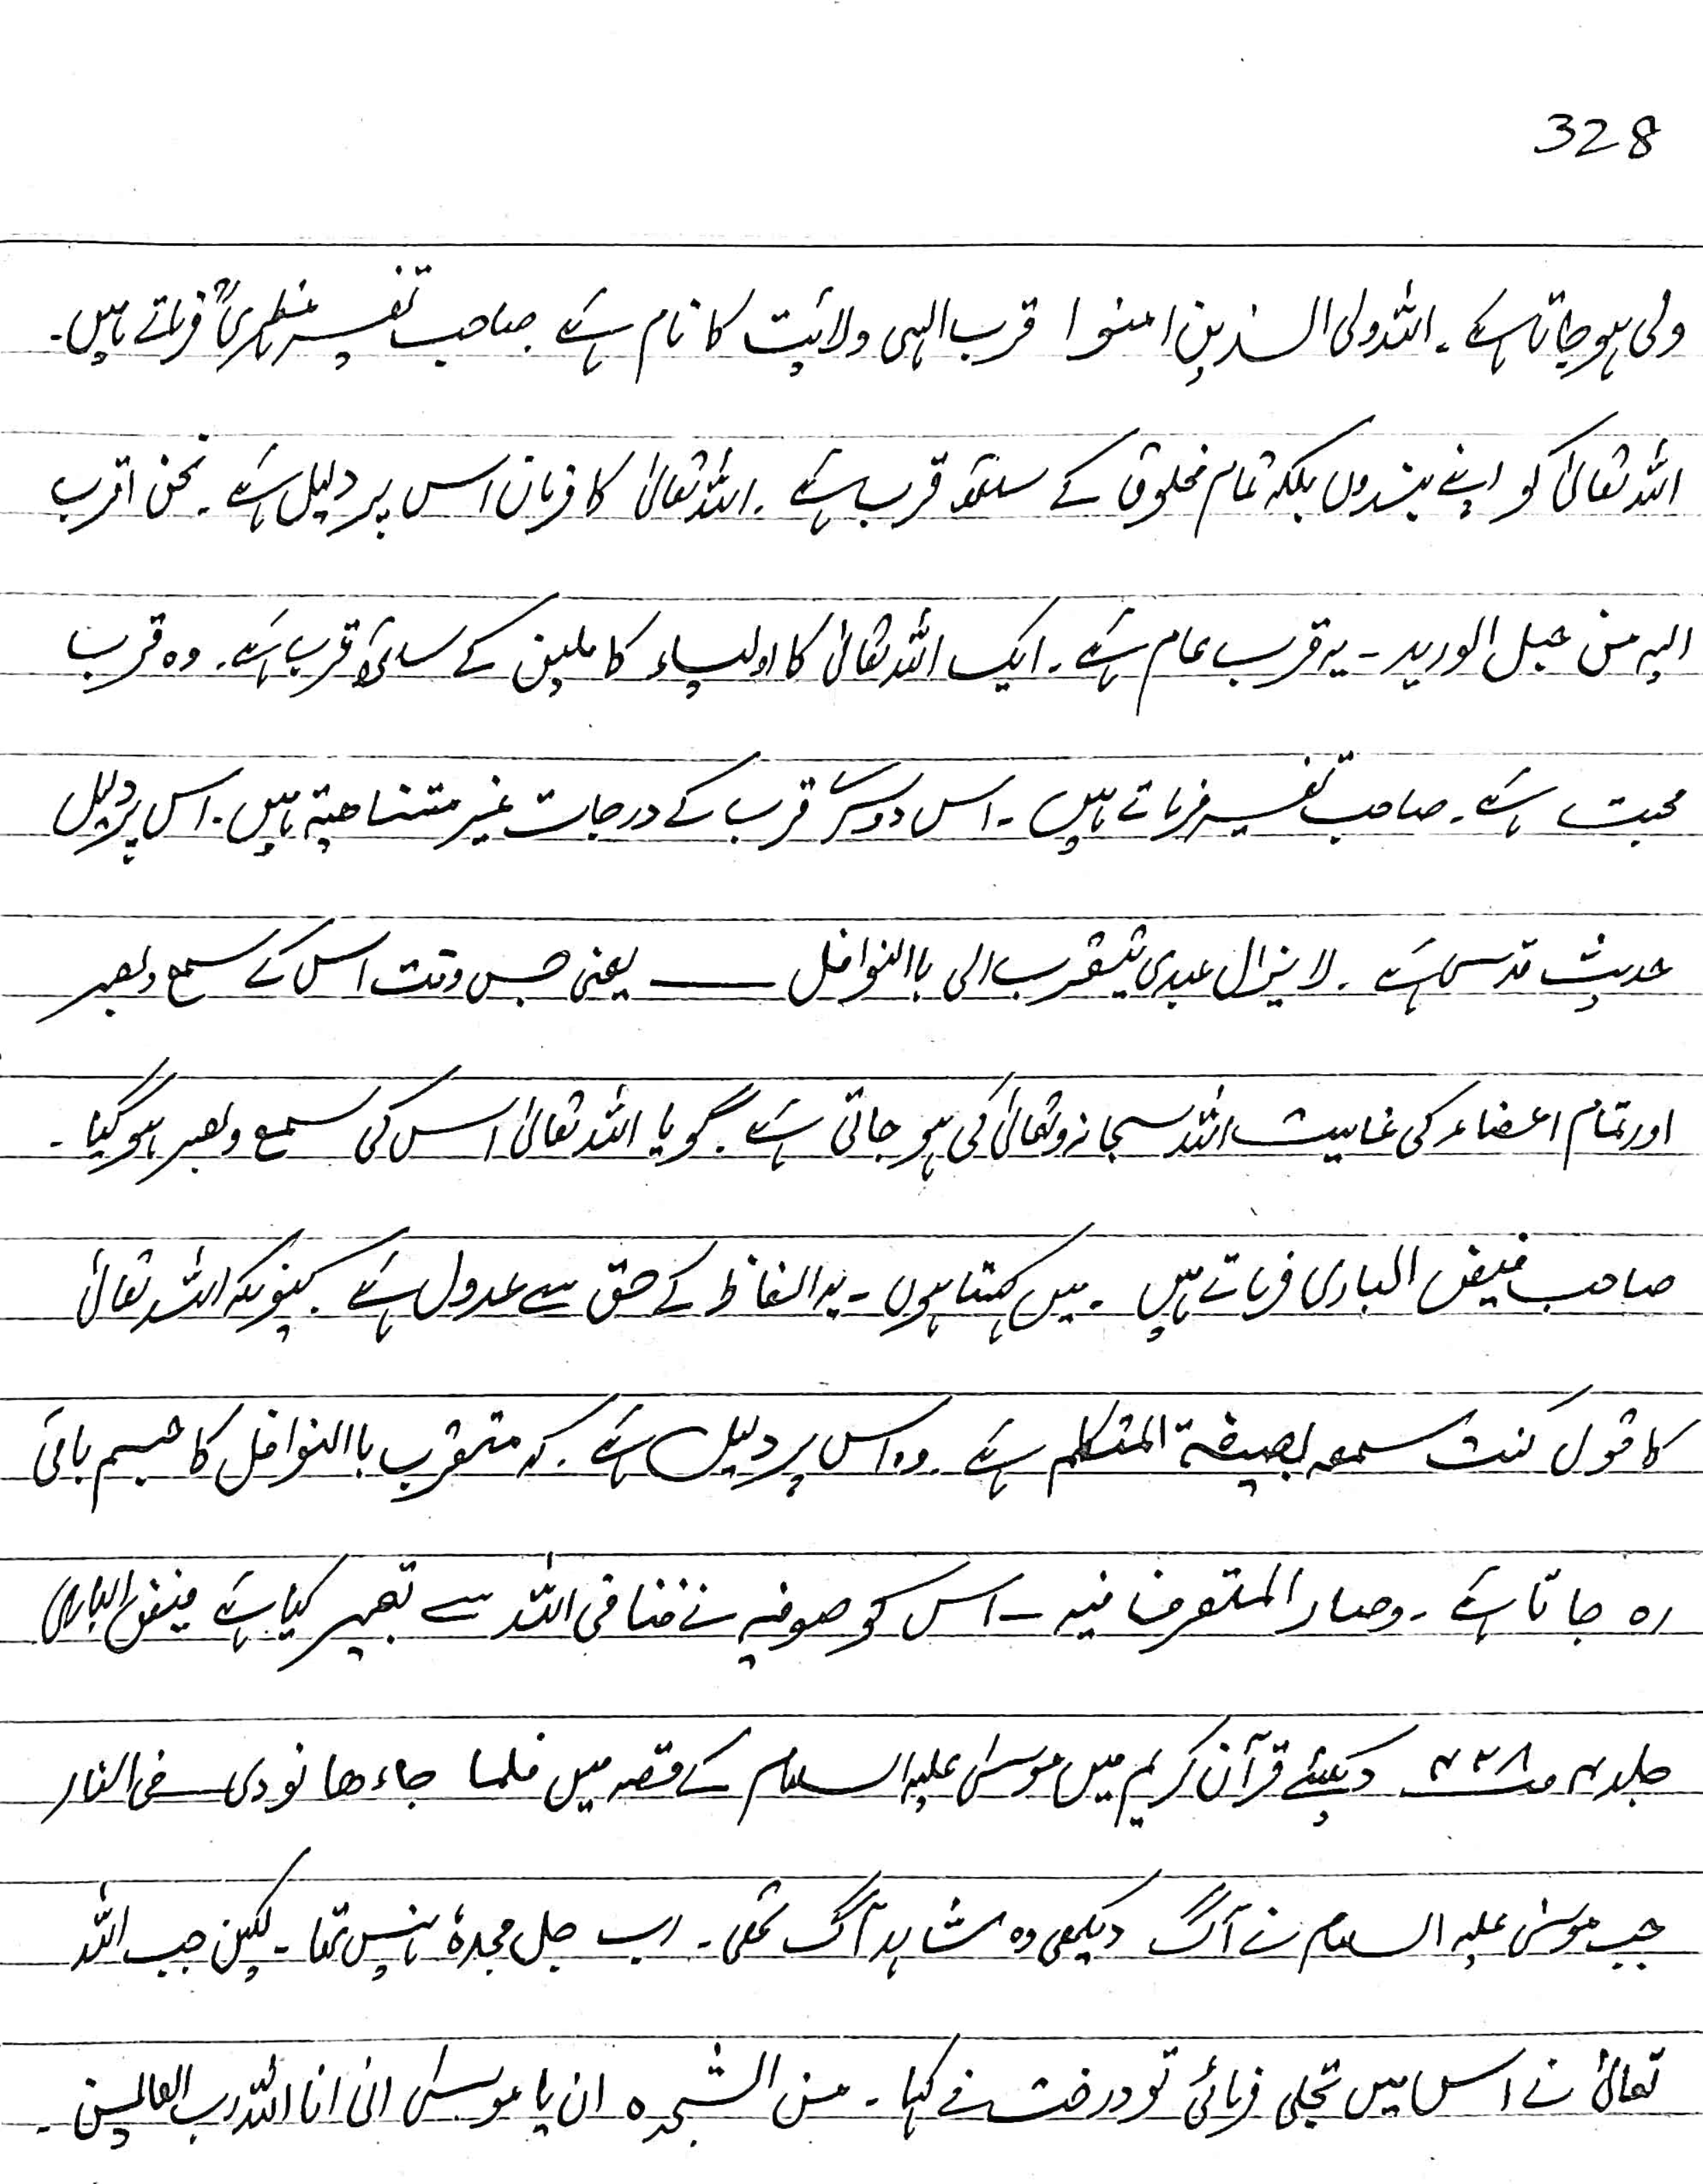 328
ولی ہوجاتا ہے ۔ اللہ ولی الذین امنوا قرب الہی ولائیت کا نام ہے ۔ صاحب تفسیر مظہریؒ فرماتے ہیں ۔
اللہ تعالیٰ کو اپنے بندوں بلکہ تمام مخلوق کے ساتھ قرب ہے ۔ اللہ تعالیٰ کا فرمان اس پر دلیل ہے ۔ نحن اقرب
الیہ من حبل الورید ۔ یہ قرب عام ہے ۔ ایک اللہ تعالیٰ کا اولیاء کاملین کے ساتھ قرب ہے ۔ وہ قرب
محبت ہے ۔ صاحب تفسیر فرماتے ہیں ۔ اس دوسرے قرب کے درجات غیر متناھیۃ ہیں ۔ اس پر دلیل
حدیث قدسی ہے ۔ لا یزال عبدی یتقرب الی باالنوافل ــــــ یعنی جس وقت اس کے سمع و بصر
اور تمام اعضاء کی غایت اللہ سبحانہ وتعالیٰ کی ہو جاتی ہے ۔ گویا اللہ تعالیٰ اس کی سمع و بصر ہو گیا ۔
صاحب فیض الباری فرماتے ہیں ۔ میں کہتا ہوں ۔ یہ الفاظ کے حق سے عدول ہے ۔ کیونکہ اللہ تعالیٰ
کا قول کنت سمعہ بصیغۃ المتکلم ہے ۔ وہ اس پر دلیل ہے ۔ کہ متقرب باالنوافل کا جسم باقی
رہ جاتا ہے ۔ وصار المتصرف فیہ ۔ اس کو صوفیہ نے فنا فی اللہ سے تعبیر کیا ہے فیض الباری
جلد ۴ صـ ۴۲۸ دیکھئے قرآن کریم میں موسیٰ علیہ السلام کے قصہ میں فلما جاءھا نودی فی النار
جب موسیٰ علیہ السلام نے آگ دیکھی وہ مشاہد آگ تھی ۔ رب جل مجدہٗ نہیں تھا ۔ لیکن جب اللہ
تعالیٰ نے اس میں تجلی فرمائی تو درخت نے کہا ۔ من الشجرہ ان یا موسیٰ انی انا اللہ رب العالمین ۔